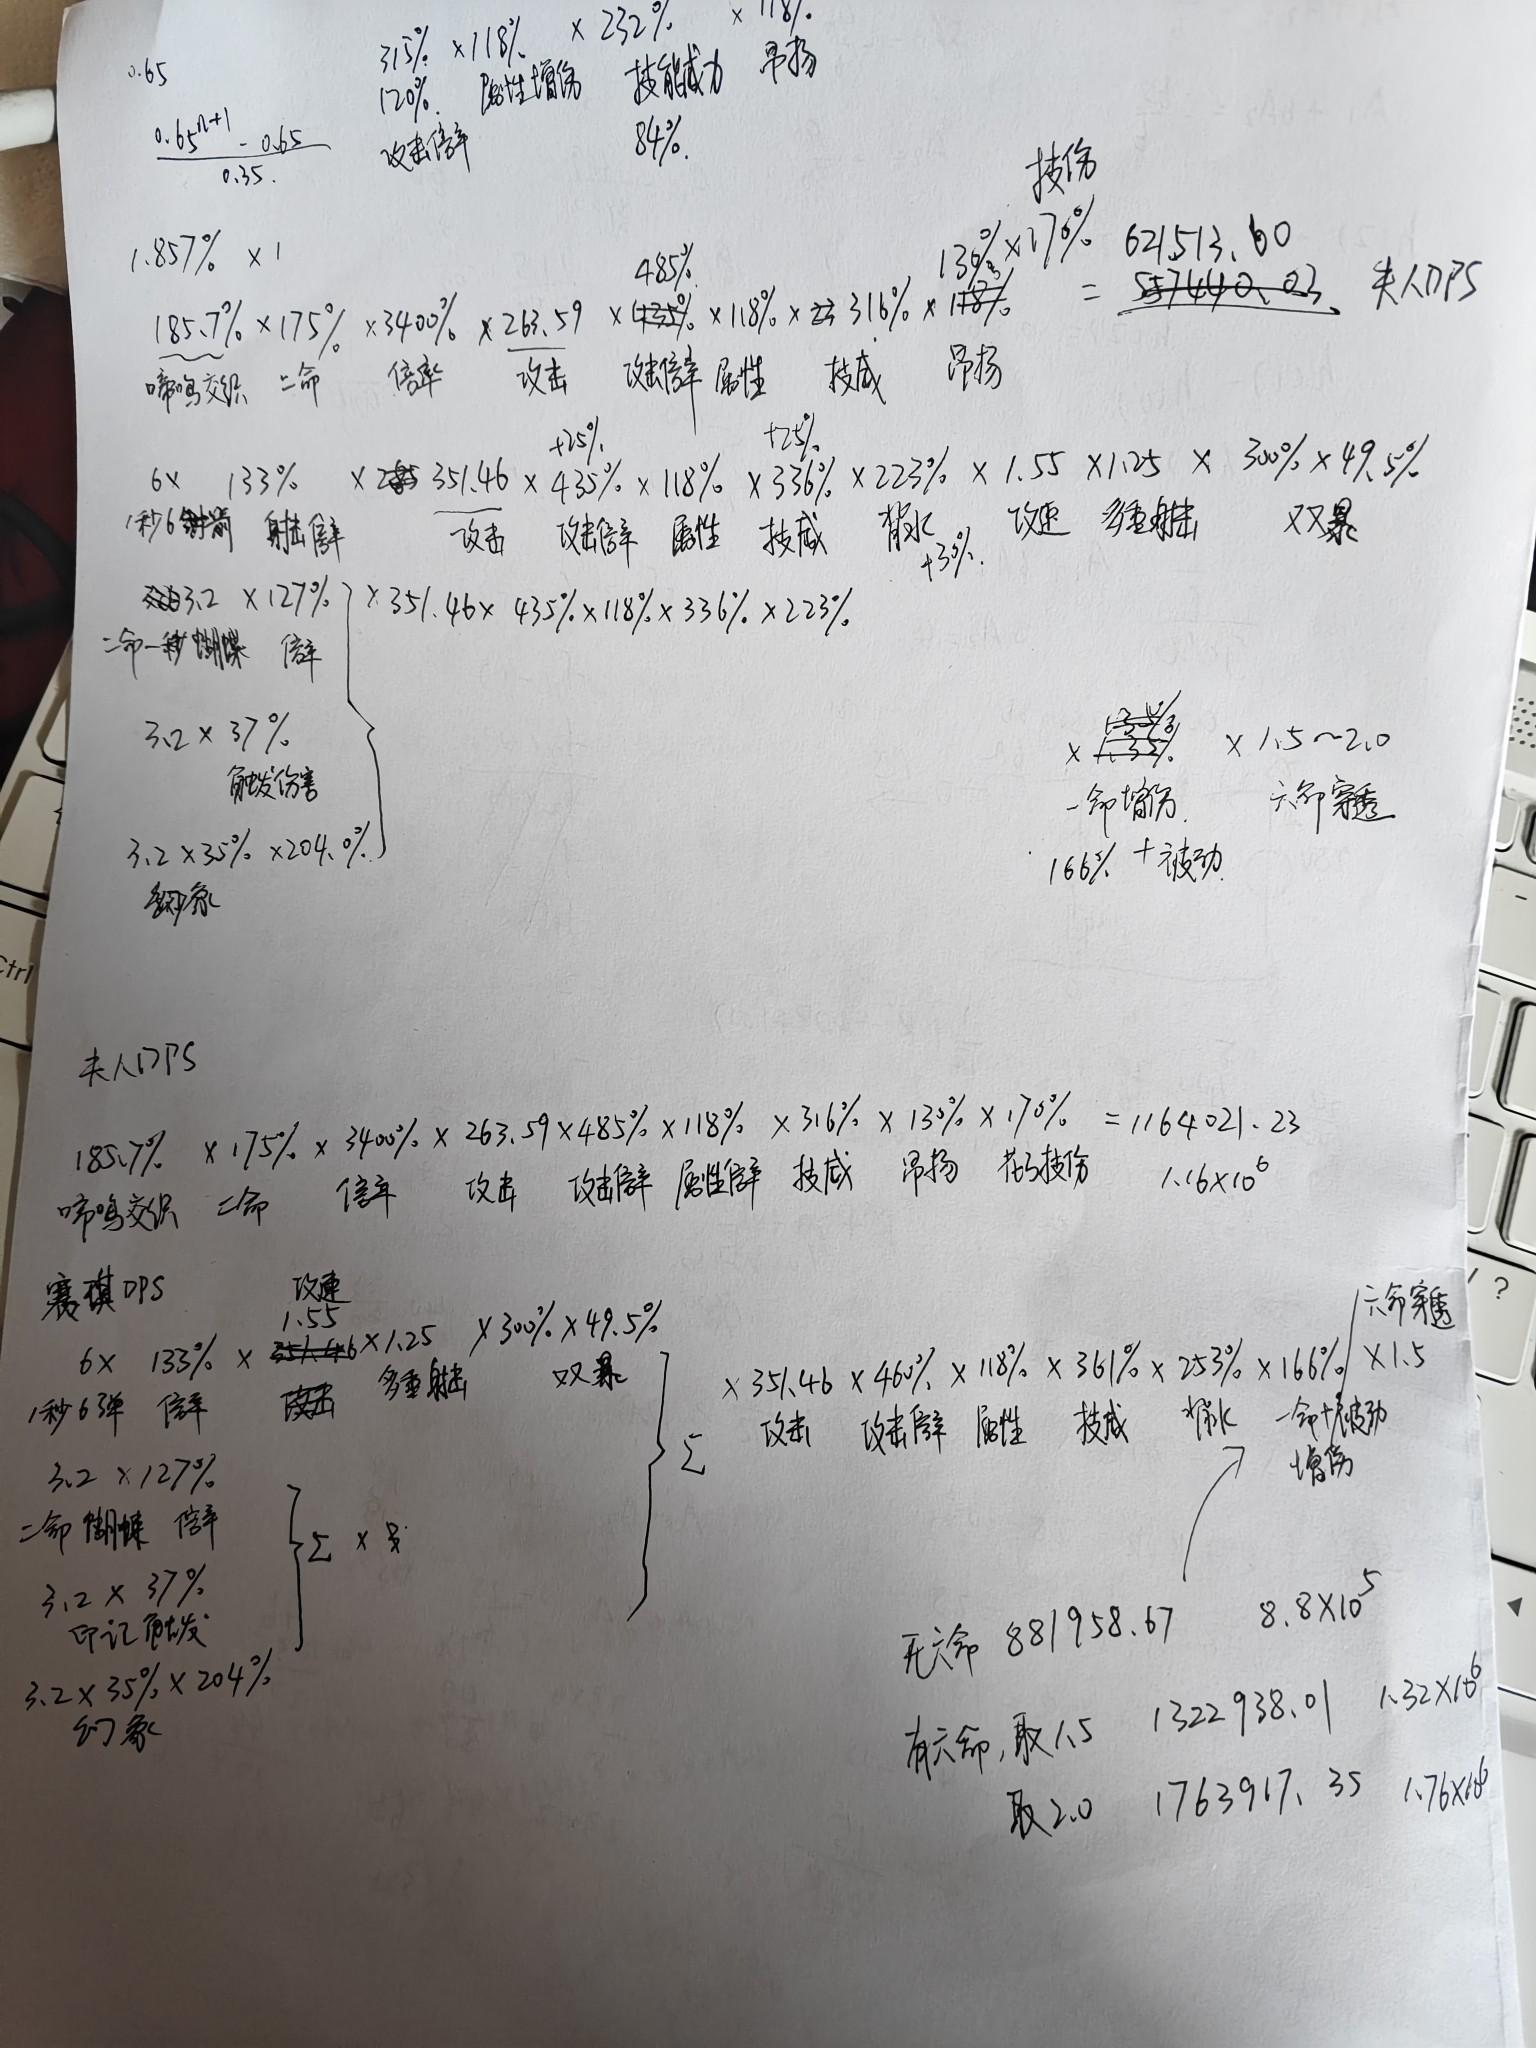 0.65
315% ×118% ×232% ×118%
120% 属性增伤 技能威力 昂扬
攻击倍率 84%.
0.65ⁿ⁺¹ - 0.65
0.35.
技伤
1.857% ×1
485% 130% ×170% 621513.60
185.7% ×175% ×3400% ×263.59 ×435% ×118% × 316% ×118% = 557440.03 夫人DPS
啼鸣交织 二命 倍率 攻击 攻击倍率 属性 技威 昂扬
+25% +25%
6× 133% × 351.46 × 435% ×118% ×336% ×223% × 1.55 ×1.25 × 300% × 49.5%
1秒6箭 射击倍率 攻击 攻击倍率 属性 技威 背水 攻速 多重射击 双暴
+30%.
3.2 ×127% ×351.46× 435%×118%×336%×223%
二命一秒蝴蝶 倍率
3.2 × 37%
触发伤害
× 1.35% × 1.5～2.0
一命增伤 六命穿透
166% +被动
3.2×35% ×204.0%
幻象
夫人DPS
185.7% ×175% × 3400% × 263.59×485%×118% ×316% ×130% ×170% =1164021.23
啼鸣交织 二命 倍率 攻击 攻击倍率 属性倍率 技威 昂扬 技伤 1.16×10⁶
赛琪DPS 攻速
1.55
6× 133% × 351.46 ×1.25 ×300%×49.5%
1秒6弹 倍率 攻击 多重射击 双暴
六命穿透
Σ ×351.46 ×460% ×118% × 361% ×253% ×166% ×1.5
攻击 攻击倍率 属性 技威 背水 一命+被动
增伤
3.2 ×127%
二命蝴蝶 倍率
Σ ×
3.2 × 37%
印记触发
3.2×35%×204%
幻象
无六命 881958.67 8.8×10⁵
有六命,取1.5 1322938.01 1.32×10⁶
取2.0 1763917.35 1.76×10⁶